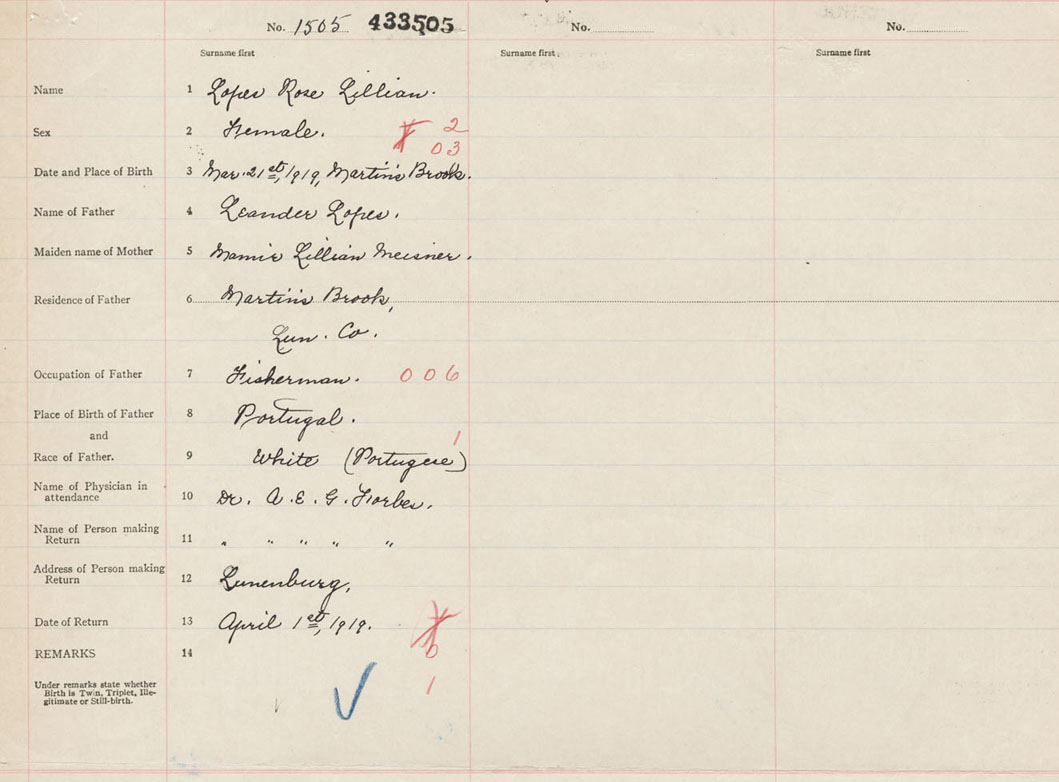 No. 1505 433505 No. No.
Surname first Surname first. Surname first
Name 1 Lopes Rose Lillian.
Sex 2 Female. 2
03
Date and Place of Birth 3 Mar. 21st, 1919, Martin's Brook.
Name of Father 4 Leander Lopes.
Maiden name of Mother 5 Mamie Lillian Meisner.
Residence of Father 6 Martin's Brook,
Lun. Co.
Occupation of Father 7 Fisherman. 006
Place of Birth of Father 8 Portugal.
and 1
Race of Father. 9 White (Portugese)
Name of Physician in
attendance 10 Dr. A. E. G. Forbes.
Name of Person making
Return 11 " " " " "
Address of Person making
Return 12 Lunenburg,
Date of Return 13 April 1st, 1919.
REMARKS 14 0
Under remarks state whether 1
Birth is Twin, Triplet, Ille-
gitimate or Still-birth.